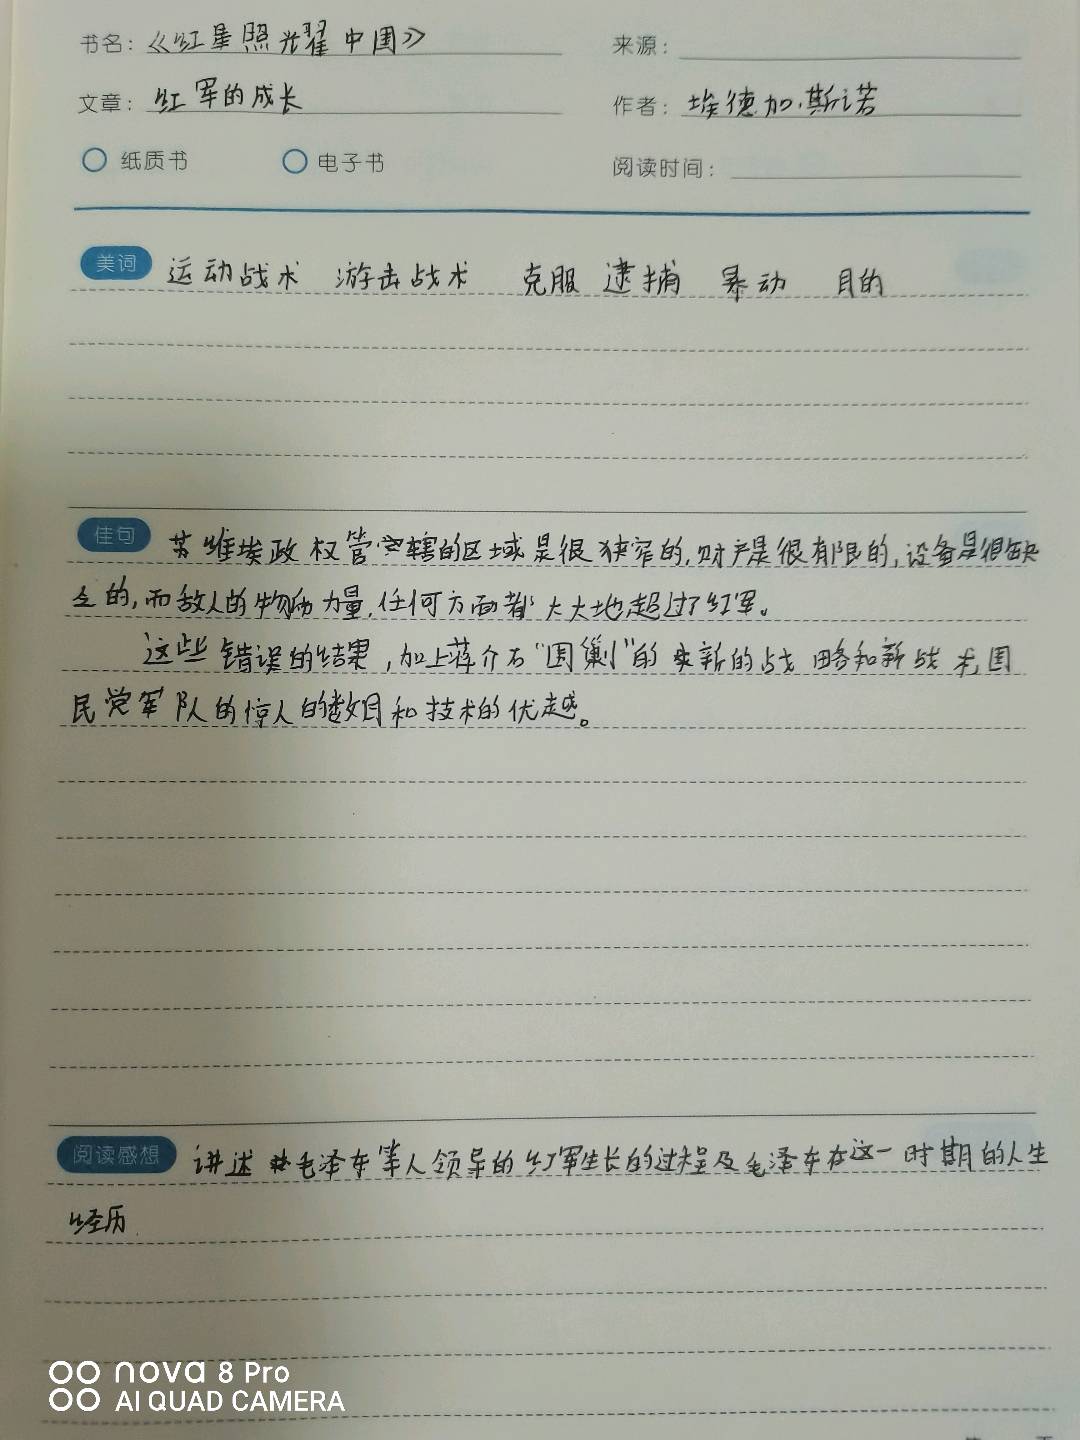 书名：《红星照耀中国》 来源：
文章：红军的成长 作者：埃德加·斯诺
纸质书 电子书 阅读时间：
美词 运动战术 游击战术 克服 逮捕 暴动 目的
佳句 苏维埃政权管辖的区域是很狭窄的，财产是很有限的，设备是很缺
乏的，而敌人的物力量，任何方面都大大地超过了红军。
这些错误的结果，加上蒋介石“围剿”的新的战略和新战术，国
民党军队的惊人的数目和技术的优越。
阅读感想 讲述毛泽东等人领导的红军生长的过程及毛泽东在这一时期的人生
经历.
nova 8 Pro
AI QUAD CAMERA